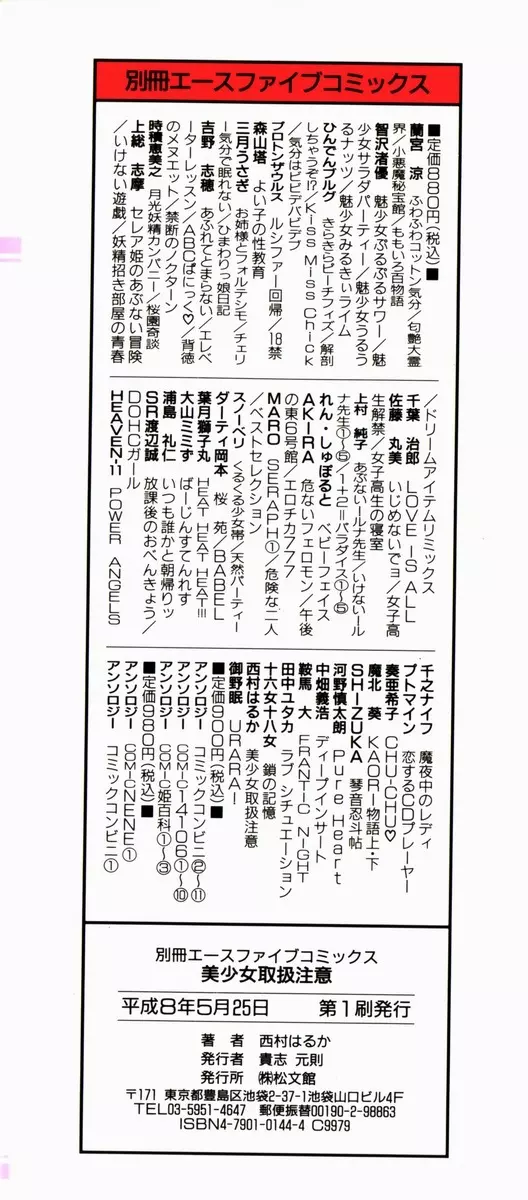 別冊エースファイブコミックス
■定価880円(税込)■
蘭宮 涼 ふわふわコットン気分/匂艶大霊
界/小悪魔秘宝館/ももいろ百物語
智沢渚優 魅少女ぷるぷるサワー/魅
少女サラダパーティー/魅少女うるう
るナッツ/魅少女みるきぃライム
ひんでんブルグ きらきらピーチフィズ/解剖
しちゃうぞ!?/Kiss Miss Chick
/気分はビビデバビデブ
プロトンザウルス ルシファー回帰/18禁
森山塔 よい子の性教育
三月うさぎ お姉様とフォルテシモ/チェリ
ー気分で眠れない/ひまわりっ娘日記
吉野 志穂 あふれてとまらない/エレベ
ーターレッスン/ABCぱにっく♡/背徳
のメヌエット/禁断のノクターン
時積恵美之 月光妖精カンパニー/桜園奇談
上総 志摩 セレア姫のあぶない冒険
/いけない遊戯/妖精招き部屋の青春
/ドリームアイテムリミックス
千葉 治郎 LOVE IS ALL
佐藤 丸美 いじめないでョ/女子高
生解禁/女子高生の寝室
上村 純子 あぶないルナ先生/いけないルー
ナ先生①~⑥/1+2=パラダイス①~⑤
れん・しゅぽると ベビーフェイス
AKIRA 危ないフェロモン/午後
の東6号館/エロチカ777
MARO SERAPH①/危険な二人
/ベストセレクション
スノーベリ くるくる少女帯/天然パーティー
ダーティ岡本 桜 苑/BABEL
葉月獅子丸 HEAT HEAT HEAT!!!
大山ミミず ばーじんすてんれす
浦島 礼仁 いつも誰かと朝帰りッ
SR渡辺誠 放課後のおべんきょう/
DOHCガール
HEAVEN-11 POWER ANGELS
千之ナイフ 魔夜中のレディ
プトマイン 恋するCDプレーヤー
奏亜希子 CHU-CHU♡
魔北 葵 KAORI物語上・下
SHIZUKA 琴音忍斗帖
河野慎太朗 Pure Heart
中畑義浩 ディープインサート
鞍馬 大 FRANTIC NIGHT
田中ユタカ ラブ シチュエーション
十六女十八女 鎖の記憶
西村はるか 美少女取扱注意
御野眠 URARA!
■定価900円(税込)■
アンソロジー コミックコンビニ②~⑪
アンソロジー COM-C14106①~⑩
アンソロジー COM-C姫百科①~③
■定価980円(税込)■
アンソロジー COM-CNENE①
アンソロジー コミックコンビニ①
別冊エースファイブコミックス
美少女取扱注意
平成8年5月25日 第1刷発行
著者 西村はるか
発行者 貴志 元則
発行所 ㈱松文館
〒171 東京都豊島区池袋2-37-1池袋山口ビル4F
TEL03-5951-4647 郵便振替00190-2-98863
ISBN4-7901-0144-4 C9979